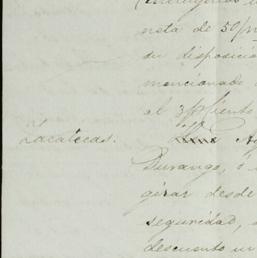 neta de 50/m
su disposicio
mencionado
al 3
á
Zacatecas.
Durango, ó
girar desde
seguridad,
descuento un